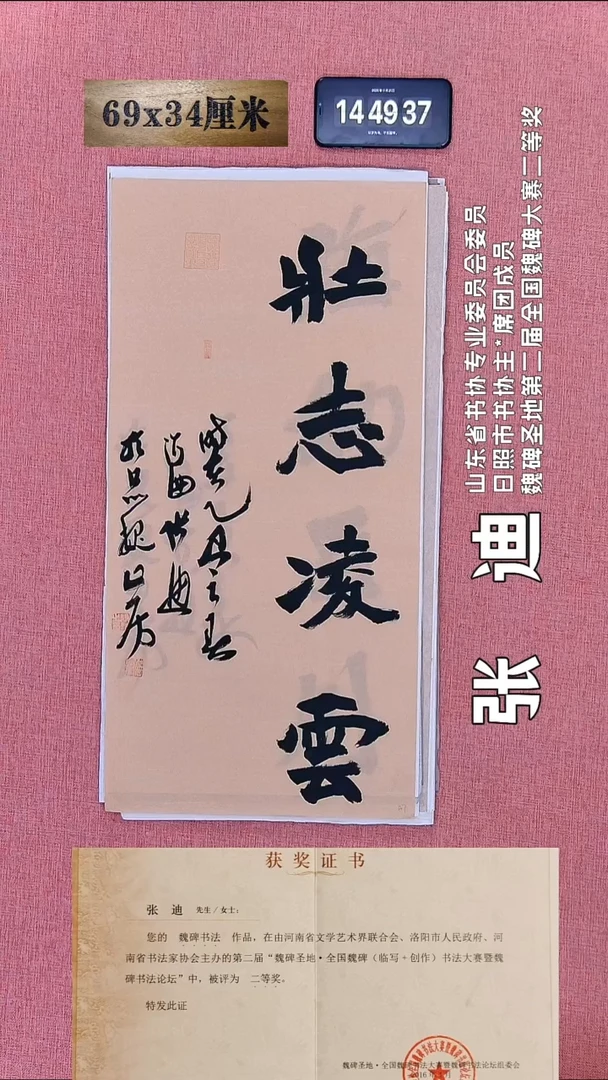 69x34厘米
14 49 37
壮志凌雲
山东省书协专业委员会委员
日照市书协主*席团成员
魏碑圣地第二届全国魏碑大赛二等奖
张 迪
获奖证书
张 迪 先生/女士:
您的 魏碑书法 作品,在由河南省文学艺术界联合会、洛阳市人民政府、河
南省书法家协会主办的第二届“魏碑圣地·全国魏碑(临写+创作)书法大赛暨魏
碑书法论坛”中,被评为 二等奖。
特发此证
魏碑圣地·全国魏碑书法大赛暨魏碑书法论坛组委会